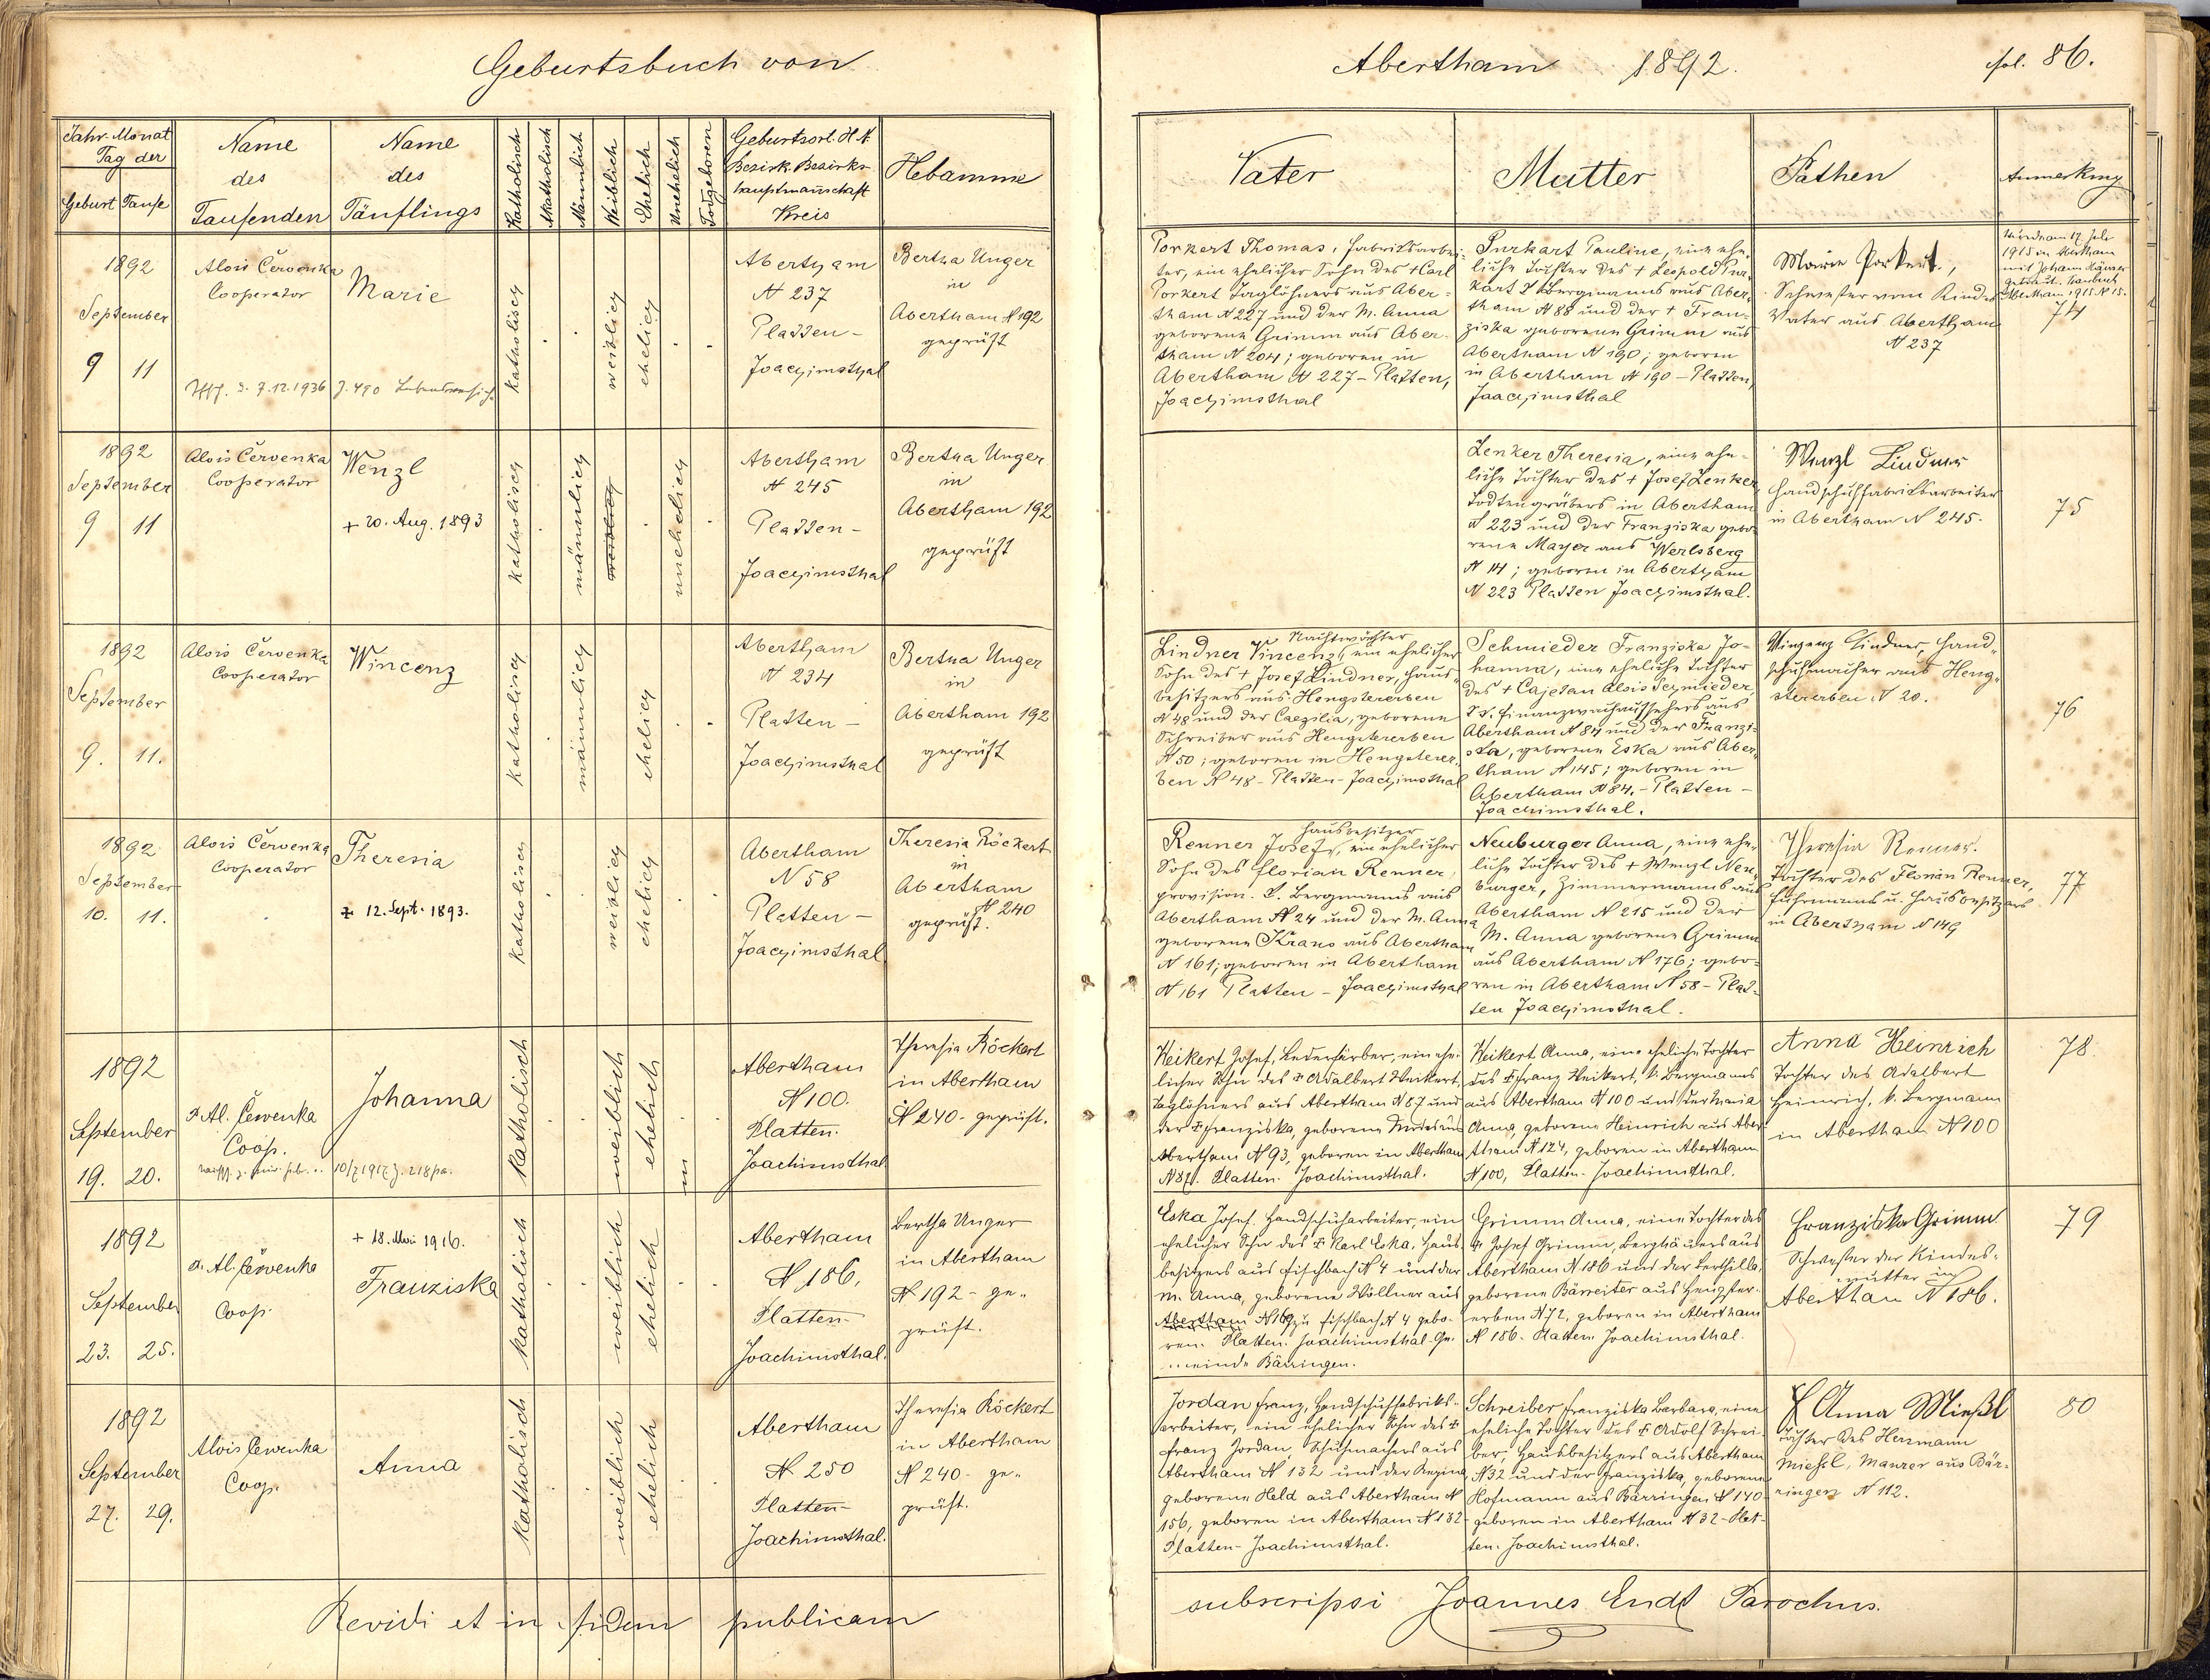 Geburtsbuch von
Abertham 1892.
fol. 86.
Jahr Monat
Tag der
Geburt Taufe
Name
des
Taufenden
Name
des
Täuflings
Katholisch
Akatholisch
Männlich
Weiblich
Ehelich
Unehelich
Todgeboren
Geburtsort. H. N.
Bezirk. Bezirks-
hauptmannschaft
Kreis
Hebamme
Vater
Mutter
Pathen
Anmerkung
1892
September
9 11
Alois Červenka
Cooperator
Marie
7.12.1936 J. 490
katholisch
weiblich
ehelich
Abertham
N 237
Platten-
Joachimsthal
Bertha Unger
in
Abertham N 192
geprüft
Porkert Thomas, Fabriksarbei-
ter, ein ehelicher Sohn des + Carl
Porkert Taglöhners aus Aber-
tham N 227 und der M. Anna
geborene Grimm aus Aber-
tham N 204; geboren in
Abertham N 227 - Platten,
Joachimsthal
Purkart Pauline, eine ehe-
liche Tochter des + Leopold Pur-
kart Bergmanns aus Aber-
tham N 88 und der + Fran-
ziska geborene Grimm aus
Abertham N 190; geboren
in Abertham N 190 - Platten,
Joachimsthal
Marie Porkert,
Schwester vom Kindes
Vater aus Abertham
N 237
1915 in Abertham
mit Johann
getraut. Traubuch
Abertham 1915 N 15.
74
1892
September
9 11
Alois Červenka
Cooperator
Wenzl
+ 20. Aug. 1893
katholisch
männlich
weiblich
unehelich
Abertham
N 245
Platten-
Joachimsthal
Bertha Unger
in
Abertham 192
geprüft
Lenker Theresia, eine ehe-
liche Tochter des + Josef Lenker,
Todtengräbers in Abertham
N 223 und der Franziska gebo-
rene Mayer aus Werlsberg
N 14; geboren in Abertham
N 223 Platten Joachimsthal.
Wenzl Lindner
Handschuhfabriksarbeiter
in Abertham N 245.
75
1892
September
9. 11.
Alois Červenka
Cooperator
Wincenz
katholisch
männlich
ehelich
Abertham
N 234
Platten -
Joachimsthal
Bertha Unger
in
Abertham 192
geprüft
Nachtwächter
Lindner Vincenz, ein ehelicher
Sohn des + Josef Lindner, Haus-
besitzers aus Hengstererben
N 48 und der Caezilia, geborene
Schreiber aus Hengstererben
N 50; geboren in Hengsterer-
ben N 48 - Platten - Joachimsthal
Schmieder Franziska Jo-
hanna, eine eheliche Tochter
des + Cajetan Alois Schmieder,
Finanzwachaufsehers aus
Abertham N 84 und der Franzi-
ska, geborene Eska aus Aber-
tham N 145; geboren in
Abertham N 84. - Platten -
Joachimsthal.
Vinzenz Lindner, Hand-
schuhmacher aus Heng-
stererben N 20.
76
1892
September
10. 11.
Alois Červenka
Cooperator
Theresia
+ 12. Sept. 1893.
katholisch
weiblich
ehelich
Abertham
N 58
Platten -
Joachimsthal
Theresia Röckert
in
Abertham
N 240
geprüft.
Hausbesitzer
Renner Josef, ein ehelicher
Sohn des Florian Renner,
provision. k. Bergmanns aus
Abertham N 24 und der M. Anna
geborene Kraus aus Abertham
N 161; geboren in Abertham
N 161 Platten - Joachimsthal
Neuburger Anna, eine ehe-
liche Tochter des + Wenzl Neu-
burger, Zimmermanns aus
Abertham N 215 und der
M. Anna geborene Grimm
aus Abertham N 176; gebo-
ren in Abertham N 58 - Plat-
ten Joachimsthal.
Theresia Renner.
Tochter des Florian Renner,
Fuhrmanns u. Hausbesitzers
in Abertham N 149
77
1892
September
19. 20.
P. Al. Červenka
Coop.
Johanna
katholisch
weiblich
ehelich
Abertham
N 100.
Platten.
Joachimsthal
Theresia Röckert
in Abertham
N 240 - geprüft.
Weikert Josef, Lederfärber, ein ehe-
licher Sohn des + Adalbert Weikert,
Taglöhners aus Abertham N 87 und
der + Franziska, geborene
Abertham N 93, geboren in Abertham
N 87. Platten. Joachimsthal.
Weikert Anna, eine eheliche Tochter
des + Franz Weikert, k. Bergmanns
aus Abertham N 100 und der Maria
Anna, geborene Heinrich aus Aber-
tham N 124, geboren in Abertham
N 100, Platten. Joachimsthal.
Anna Heinrich
Tochter des Adalbert
Heinrich, k. Bergmann
in Abertham N 100
78.
1892
September
23. 25.
P. Al. Červenka
Coop.
+ 18. Mai 1916.
Franziska
katholisch
weiblich
ehelich
Abertham
N 186,
Platten-
Joachimsthal.
Bertha Unger
in Abertham
N 192 - ge-
prüft.
Eska Josef. Handschuharbeiter, ein
ehelicher Sohn des + Karl Eska, Haus-
besitzers aus Fischbach N 4 und der
M. Anna, geborene Wöllner aus
Abertham N 169, zu Fischbach N 4 gebo-
ren. Platten. Joachimsthal. Ge-
meinde Bärringen.
Grimm Anna, eine Tochter des
+ Josef Grimm, Berghäuers aus
Abertham N 186 und der Berthilla,
geborene Bärreiter aus Hengster-
erben N 72, geboren in Abertham
N 186. Platten. Joachimsthal.
Franziska Grimm
Schwester der Kindes-
mutter in
Abertham N 186.
79
1892
September
27. 29.
Alois Červenka
Coop.
Anna
katholisch
weiblich
ehelich
Abertham
N 250
Platten-
Joachimsthal.
Theresia Röckert
in Abertham
N 240 - ge-
prüft.
Jordan Franz, Handschuhfabriks-
arbeiter, ein ehelicher Sohn des +
Franz Jordan, Schuhmachers aus
Abertham N 132 und der Regina,
geborene Held aus Abertham N
156, geboren in Abertham N 132 -
Platten - Joachimsthal.
Schreiber Franziska Barbara, eine
eheliche Tochter des + Adolf Schrei-
ber, Hausbesitzers aus Abertham
N 32 und der Franziska, geborene
Hofmann aus Bärringen N 140
geboren in Abertham N 32 - Plat-
ten. Joachimsthal.
Anna Mießl
Tochter des Hermann
Mießl, Maurer aus Bär-
ringen N 112.
80
Revidi et in fidem publicam
subscripsi Joannes Endt Parochus.